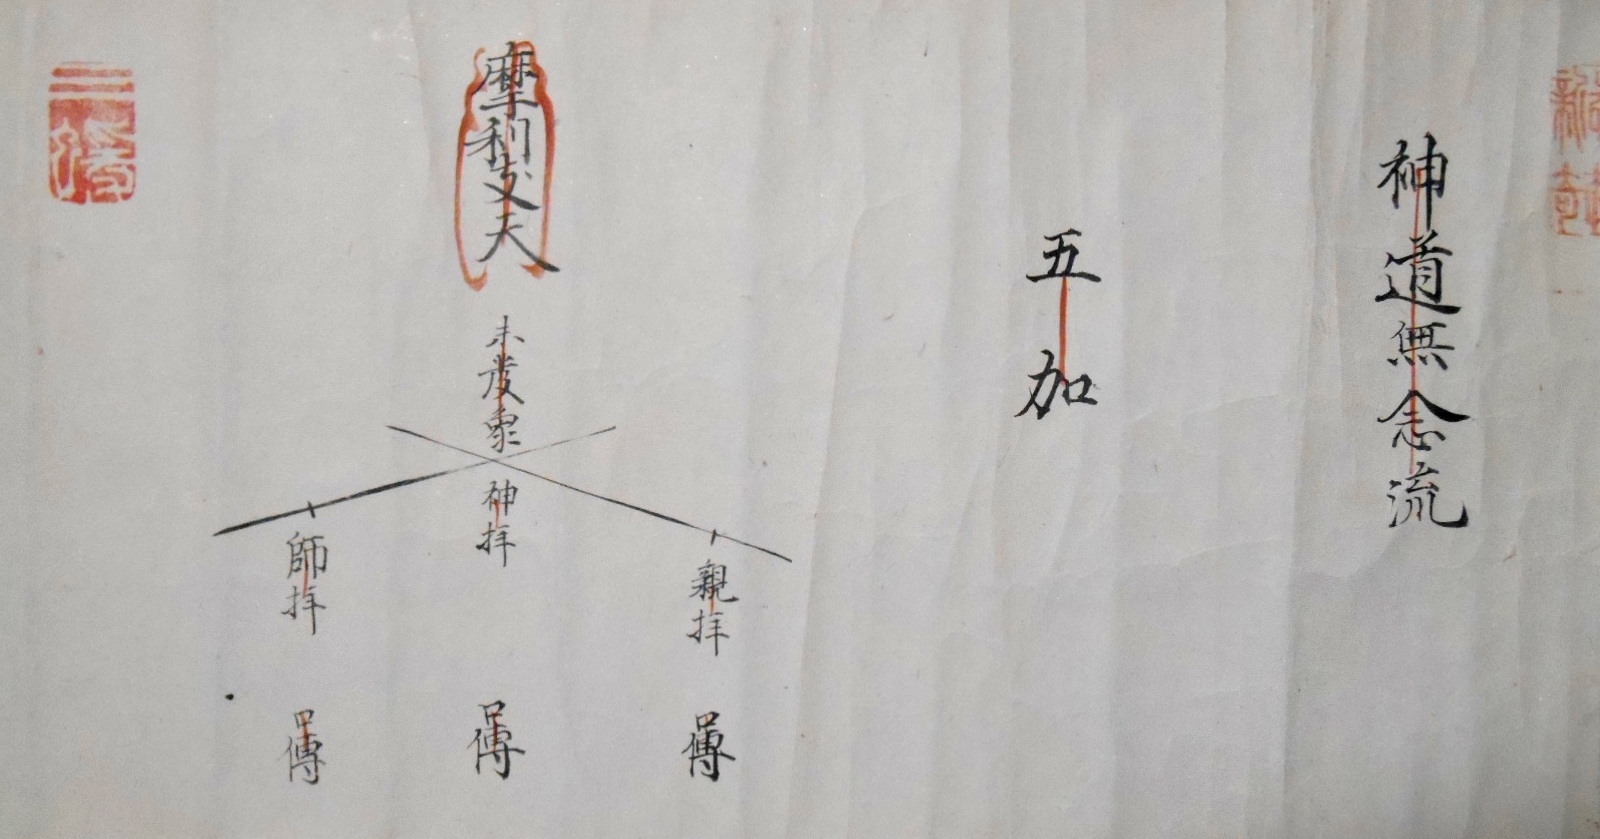 神道無念流
五加
親拝
口傳
摩利支天
未発象
神拝
口傳
師拝
口傳